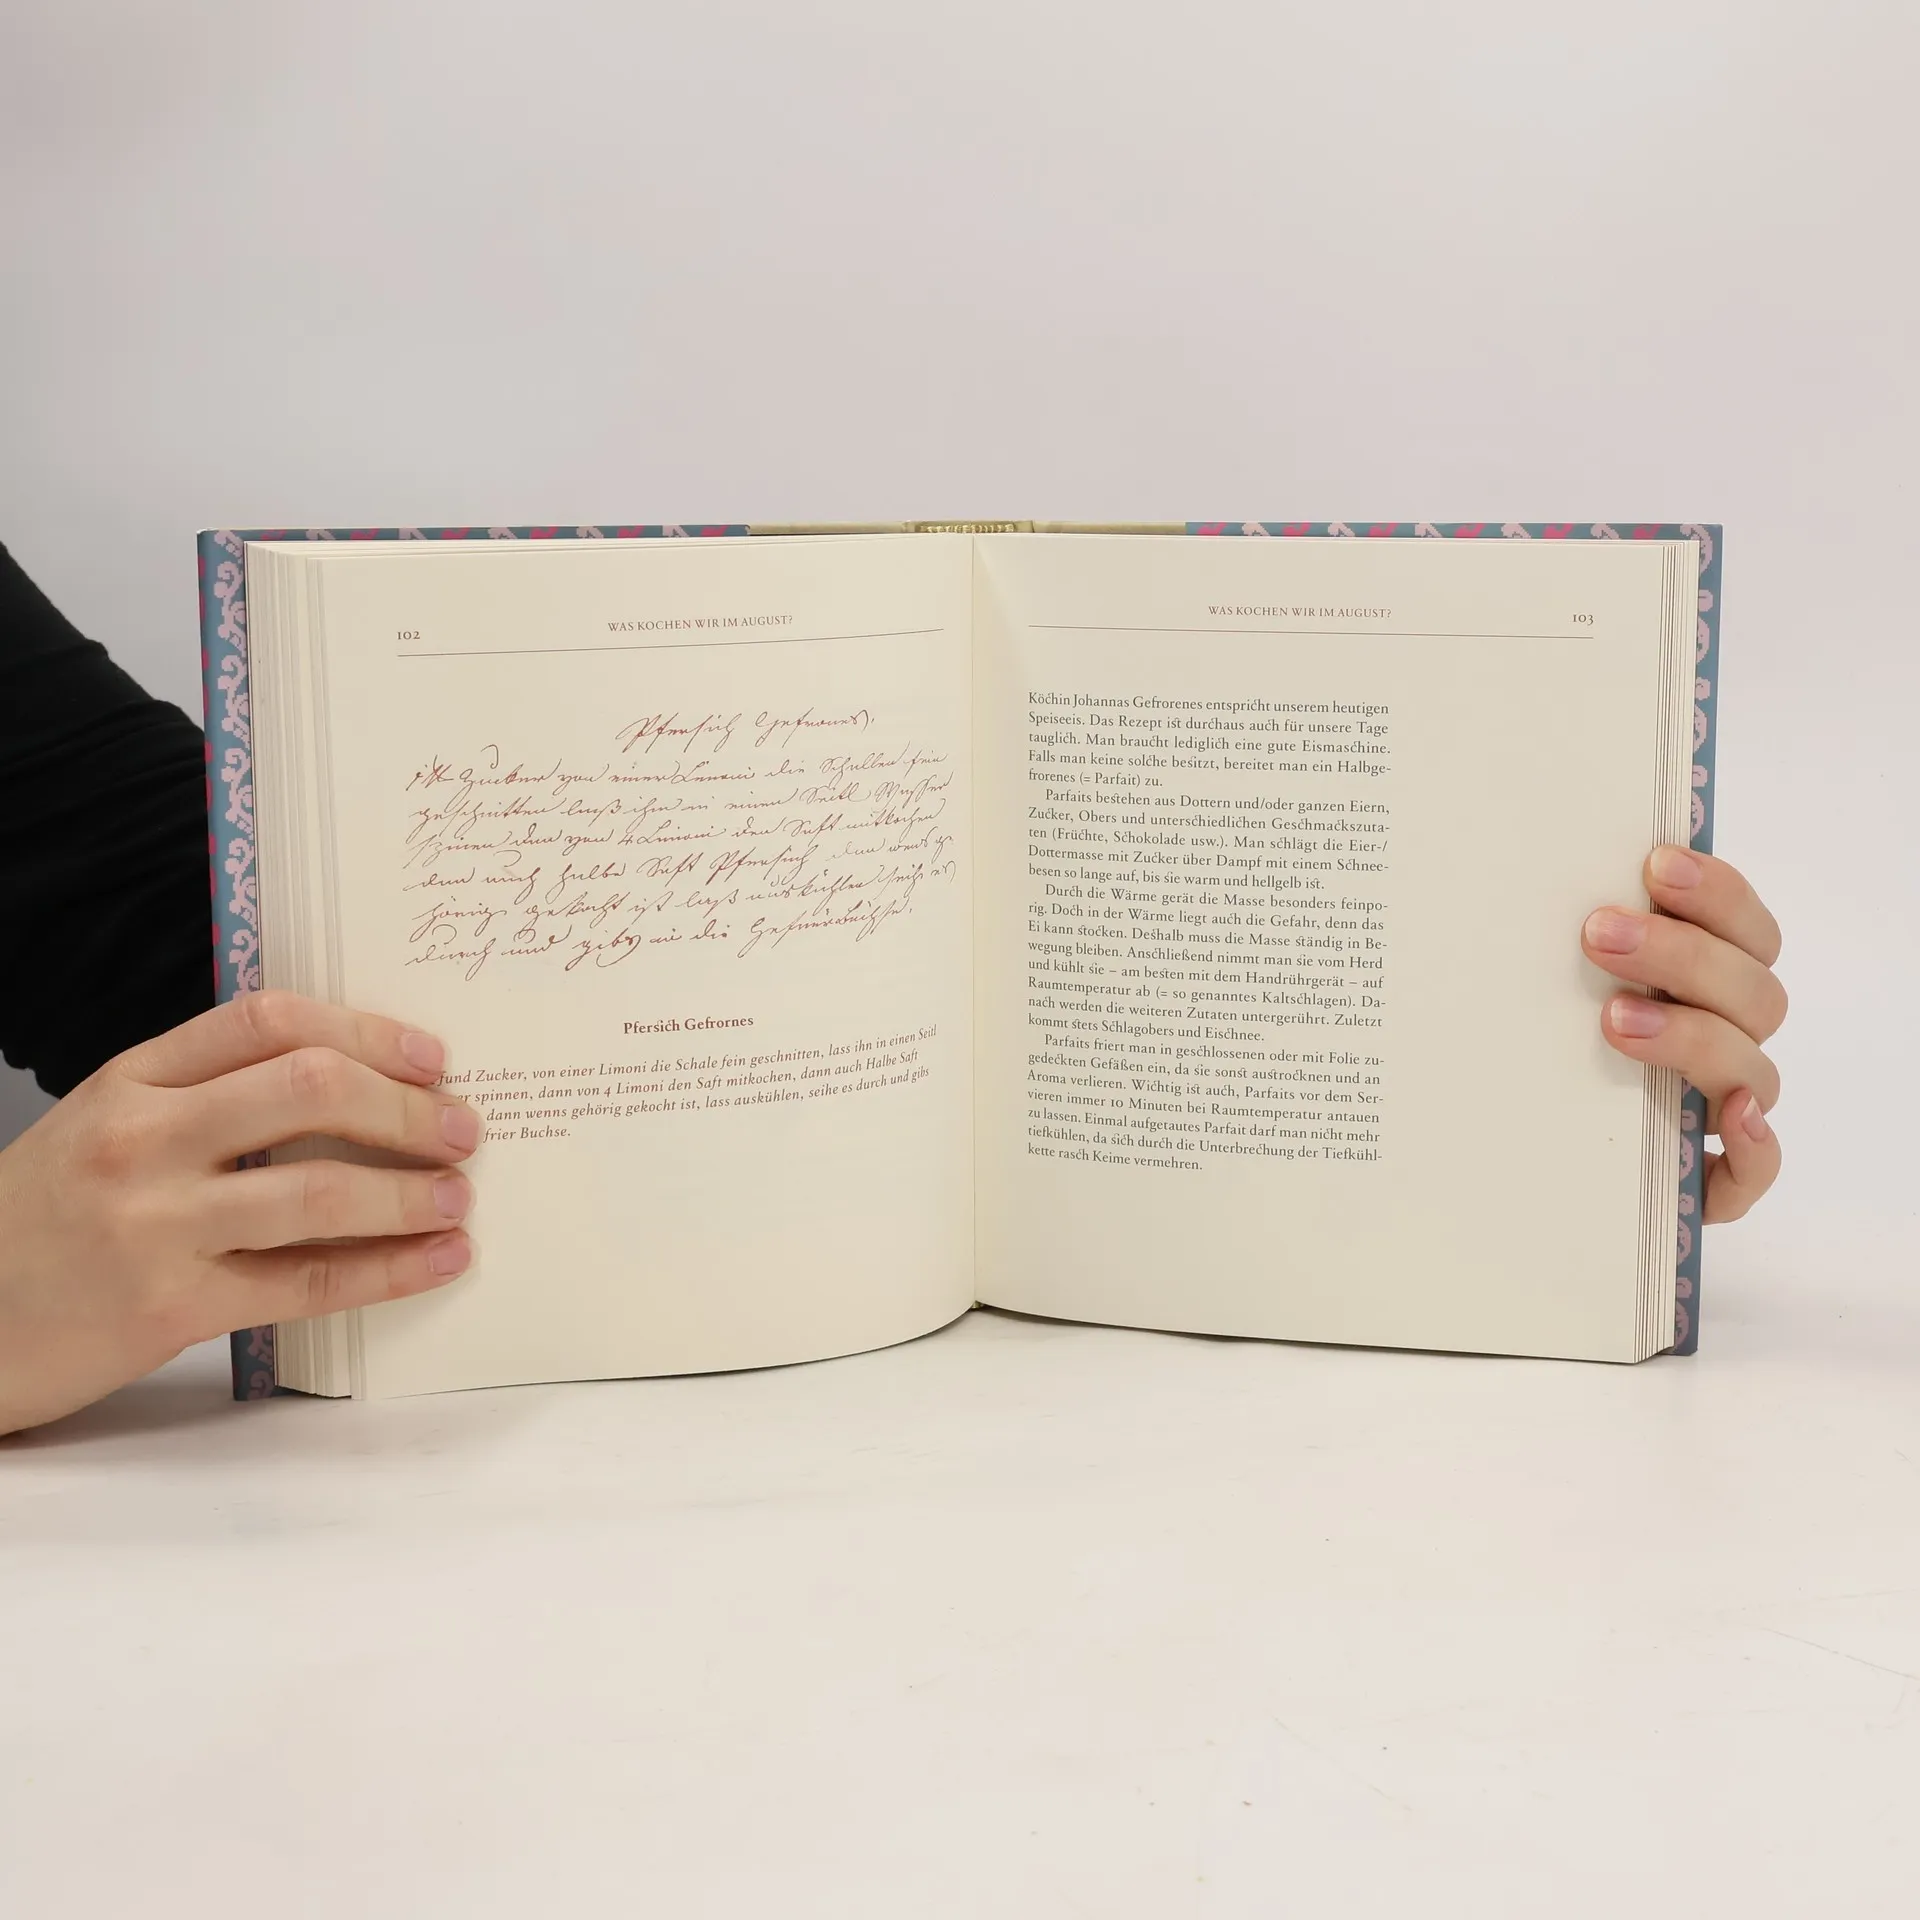 102
WAS KOCHEN WIR IM AUGUST?
Pfersich Gefrornes,
1 ℔ Zucker von einer Limoni die Schallen fein
geschnitten laß ihm in einen Seitl Wasser
spinen dan von 4 Limoni den Saft mitkochen
dan auch halbe Saft Pfersich dan wens ge-
hörig gekocht ist laß auskühlen seihe es
durch und gibs in die Gefrierbüchse.
Pfersich Gefrornes
fund Zucker, von einer Limoni die Schale fein geschnitten, lass ihn in einen Seitl
er spinnen, dann von 4 Limoni den Saft mitkochen, dann auch Halbe Saft
dann wenns gehörig gekocht ist, lass auskühlen, seihe es durch und gibs
frier Buchse.
WAS KOCHEN WIR IM AUGUST?
103
Köchin Johannas Gefrorenes entspricht unserem heutigen
Speiseeis. Das Rezept ist durchaus auch für unsere Tage
tauglich. Man braucht lediglich eine gute Eismaschine.
Falls man keine solche besitzt, bereitet man ein Halbge-
frorenes (= Parfait) zu.
Parfaits bestehen aus Dottern und/oder ganzen Eiern,
Zucker, Obers und unterschiedlichen Geschmackszuta-
ten (Früchte, Schokolade usw.). Man schlägt die Eier-/
Dottermasse mit Zucker über Dampf mit einem Schnee-
besen so lange auf, bis sie warm und hellgelb ist.
Durch die Wärme gerät die Masse besonders feinpo-
rig. Doch in der Wärme liegt auch die Gefahr, denn das
Ei kann stocken. Deshalb muss die Masse ständig in Be-
wegung bleiben. Anschließend nimmt man sie vom Herd
und kühlt sie – am besten mit dem Handrührgerät – auf
Raumtemperatur ab (= so genanntes Kaltschlagen). Da-
nach werden die weiteren Zutaten untergerührt. Zuletzt
kommt stets Schlagobers und Eischnee.
Parfaits friert man in geschlossenen oder mit Folie zu-
gedeckten Gefäßen ein, da sie sonst austrocknen und an
Aroma verlieren. Wichtig ist auch, Parfaits vor dem Ser-
vieren immer 10 Minuten bei Raumtemperatur antauen
zu lassen. Einmal aufgetautes Parfait darf man nicht mehr
tiefkühlen, da sich durch die Unterbrechung der Tiefkühl-
kette rasch Keime vermehren.